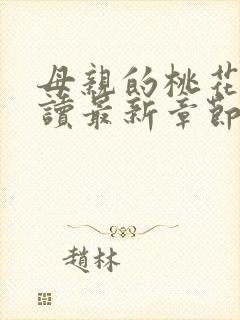 母親的桃花
讀最新章節
趙林